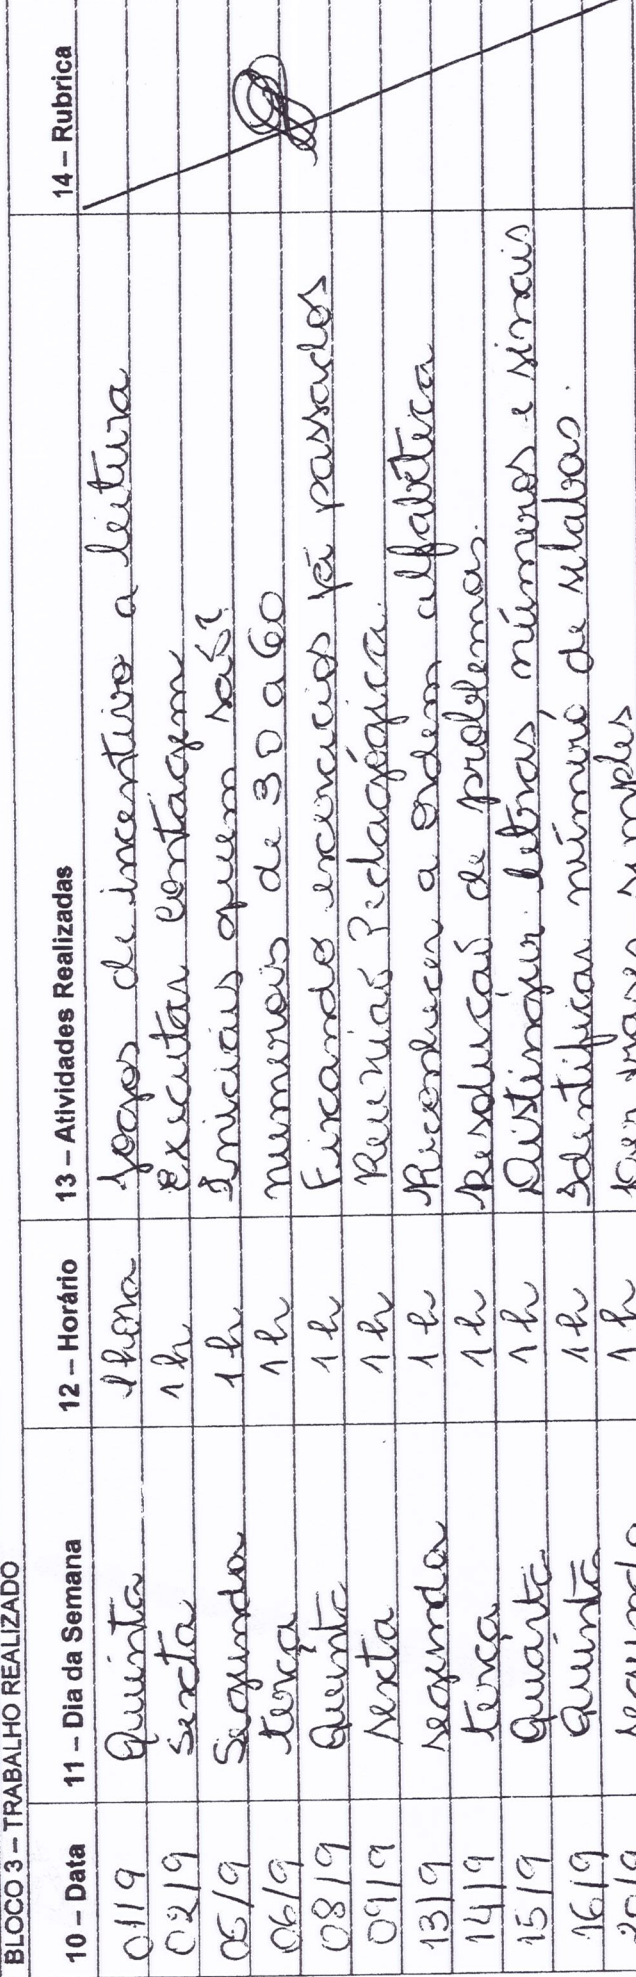 BLOCO 3 – TRABALHO REALIZADO
10 – Data 11 – Dia da Semana 12 – Horário 13 – Atividades Realizadas 14 – Rubrica
01/9 Quinta 1hora Jogos de incentivo a leitura
02/9 Sexta 1h Executar contagem
05/9 Segunda 1h Iniciais quem sa
06/9 terça 1h numerais de 30 a 60
08/9 Quinta 1h Fixando exercicios já passados
09/9 sexta 1h Reunião Pedagógica.
13/9 segunda 1h Reconhecer a ordem alfabética
14/9 terça 1h Resolução de problemas.
15/9 Quarta 1h Distinguir letras, números e sinais
16/9 Quinta 1h Identificar número de silabas.
20/9 segunda 1h frases simples